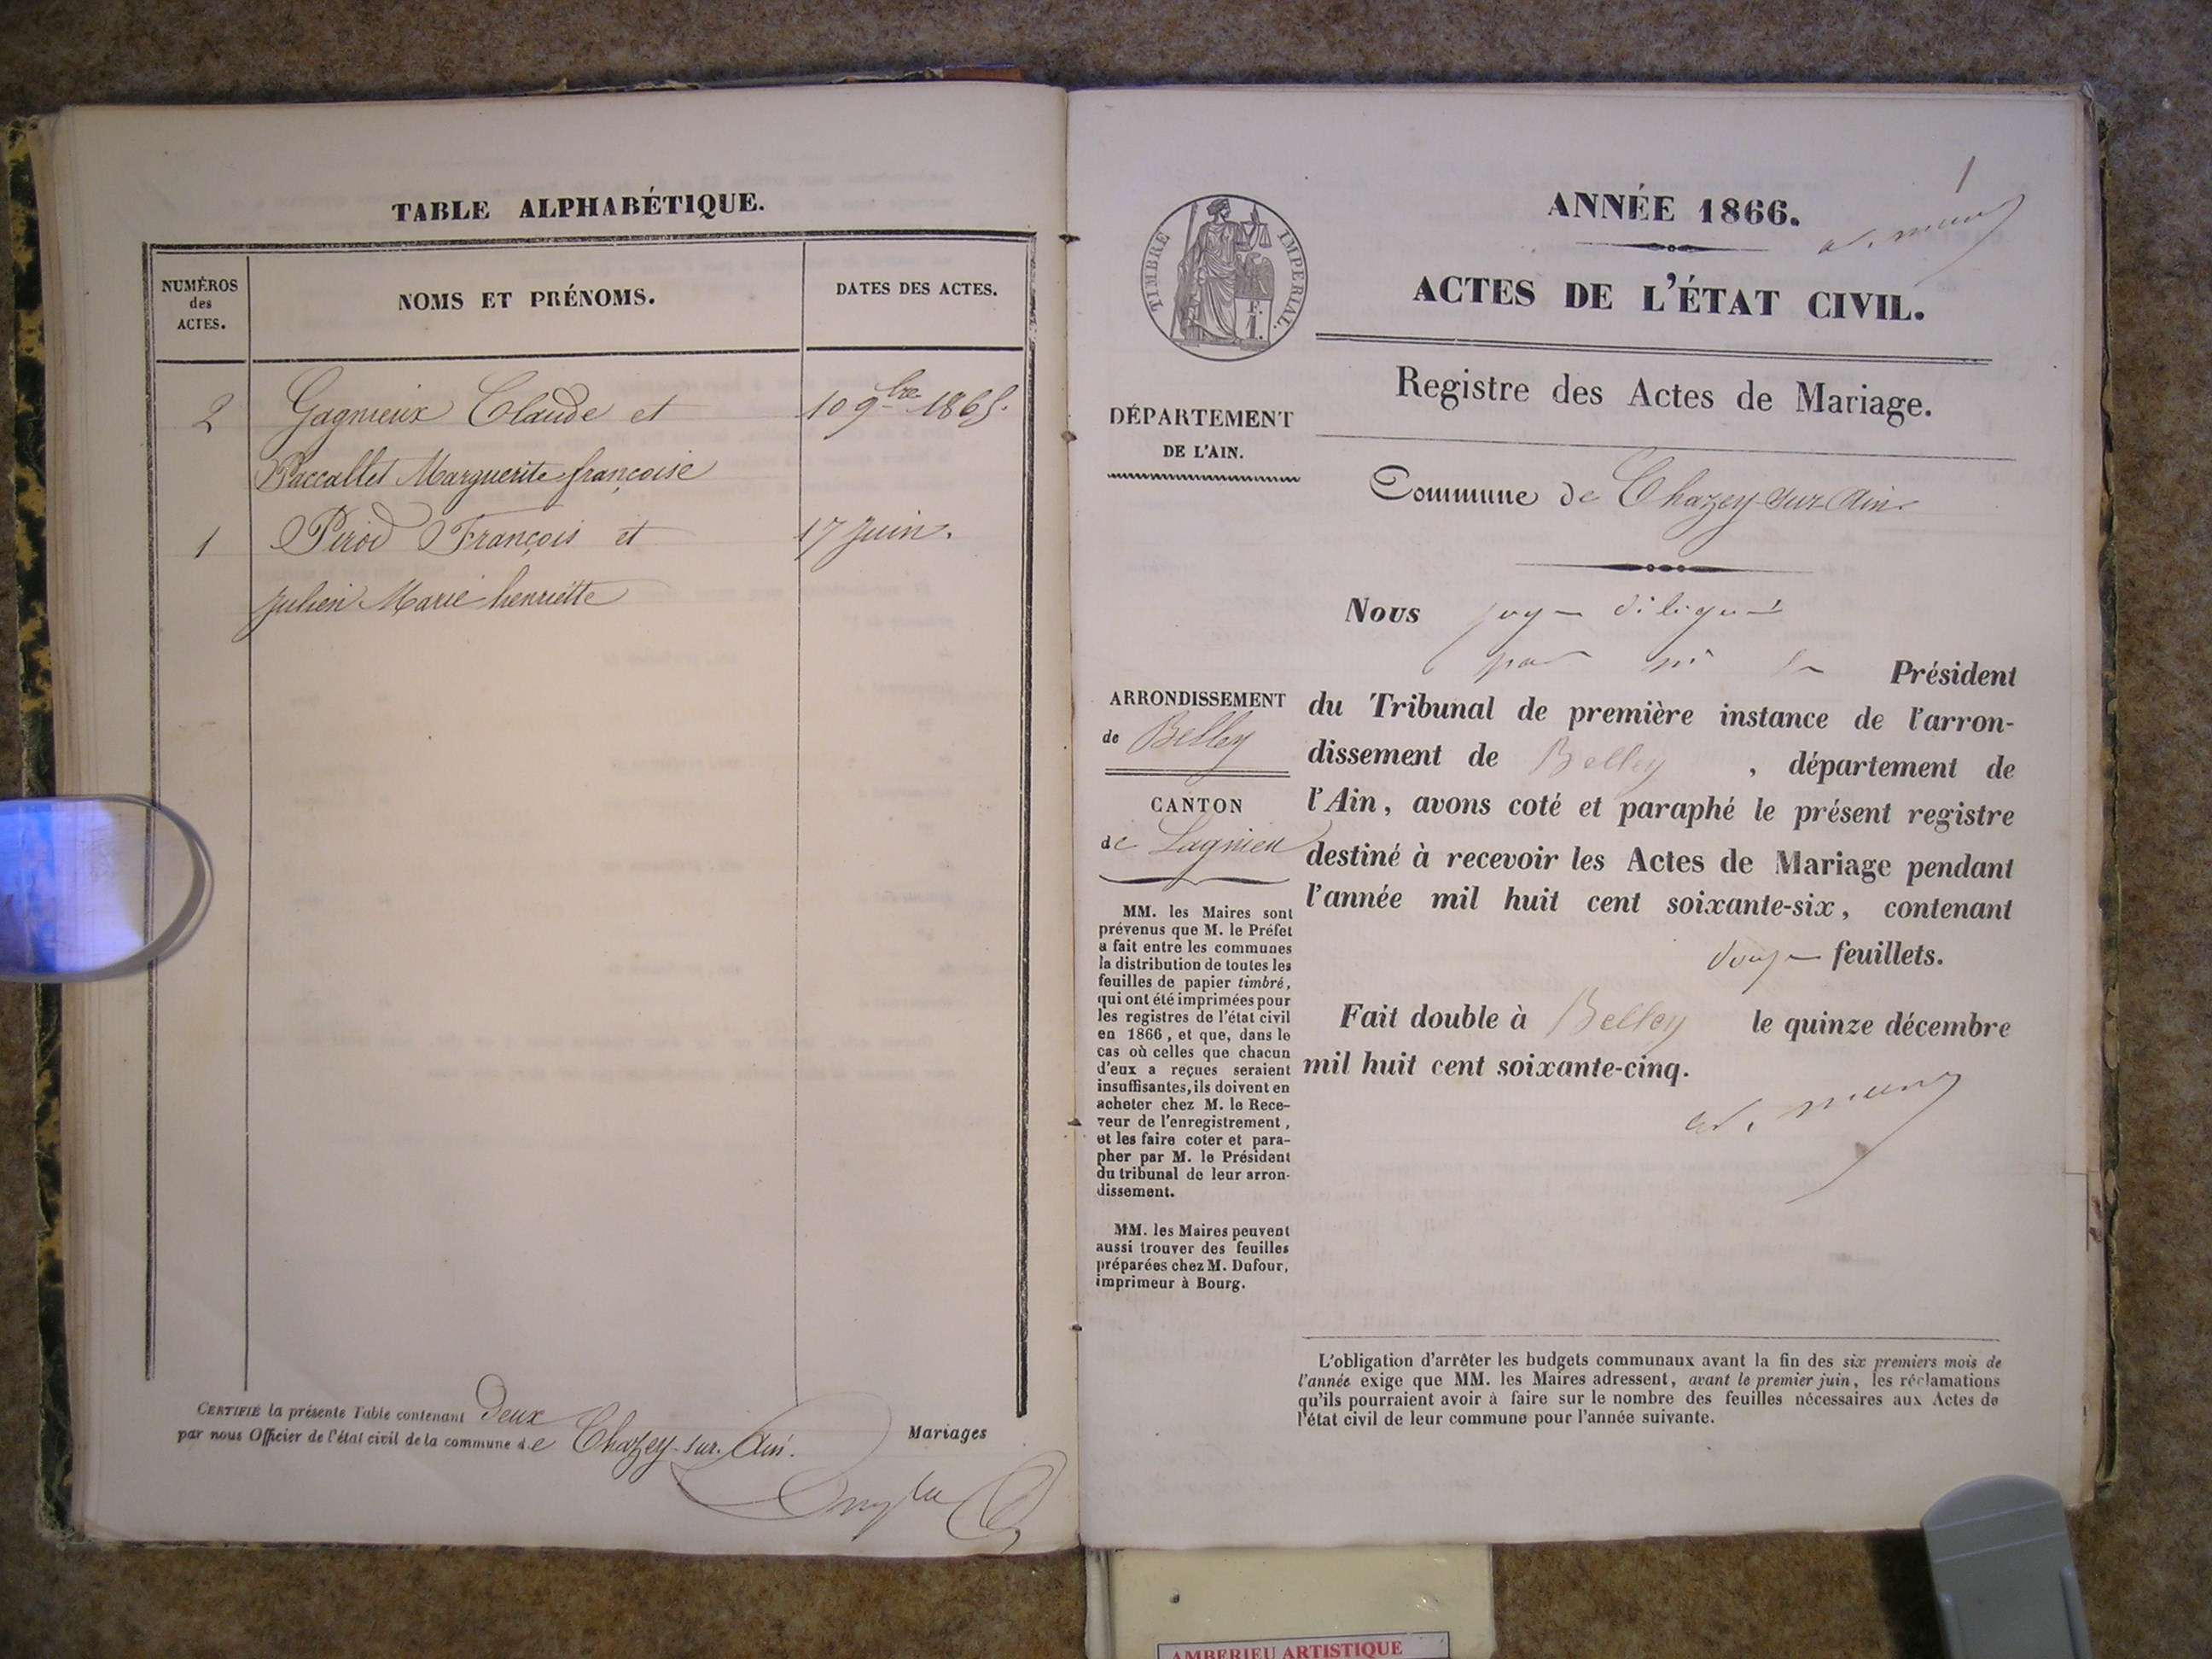 TABLE ALPHABÉTIQUE.
NUMÉROS
des
ACTES.
NOMS ET PRÉNOMS.
DATES DES ACTES.
2 Gagnieux Claude et 10 9bre 1865.
Paccallet Marguerite françoise
1 Pirod François et 17 Juin.
Julien Marie henriette
CERTIFIÉ la présente Table contenant deux Mariages
par nous Officier de l'état civil de la commune de Chazey-sur-Ain.
1
ANNÉE 1866.
TIMBRE IMPERIAL.
ACTES DE L'ÉTAT CIVIL.
Registre des Actes de Mariage.
DÉPARTEMENT
DE L'AIN.
Commune de Chazey-sur-Ain.
Nous juge délégué
par mr le Président
ARRONDISSEMENT
de Belley
CANTON
de Lagnieu
du Tribunal de première instance de l'arron-
dissement de Belley, département de
l'Ain, avons coté et paraphé le présent registre
destiné à recevoir les Actes de Mariage pendant
l'année mil huit cent soixante-six, contenant
douze feuillets.
Fait double à Belley le quinze décembre
mil huit cent soixante-cinq.
MM. les Maires sont
prévenus que M. le Préfet
a fait entre les communes
la distribution de toutes les
feuilles de papier timbré,
qui ont été imprimées pour
les registres de l'état civil
en 1866, et que, dans le
cas où celles que chacun
d'eux a reçues seraient
insuffisantes, ils doivent en
acheter chez M. le Rece-
veur de l'enregistrement,
et les faire coter et para-
pher par M. le Président
du tribunal de leur arron-
dissement.
MM. les Maires peuvent
aussi trouver des feuilles
préparées chez M. Dufour,
imprimeur à Bourg.
L'obligation d'arrêter les budgets communaux avant la fin des six premiers mois de
l'année exige que MM. les Maires adressent, avant le premier juin, les réclamations
qu'ils pourraient avoir à faire sur le nombre des feuilles nécessaires aux Actes de
l'état civil de leur commune pour l'année suivante.
AMBERIEU ARTISTIQUE